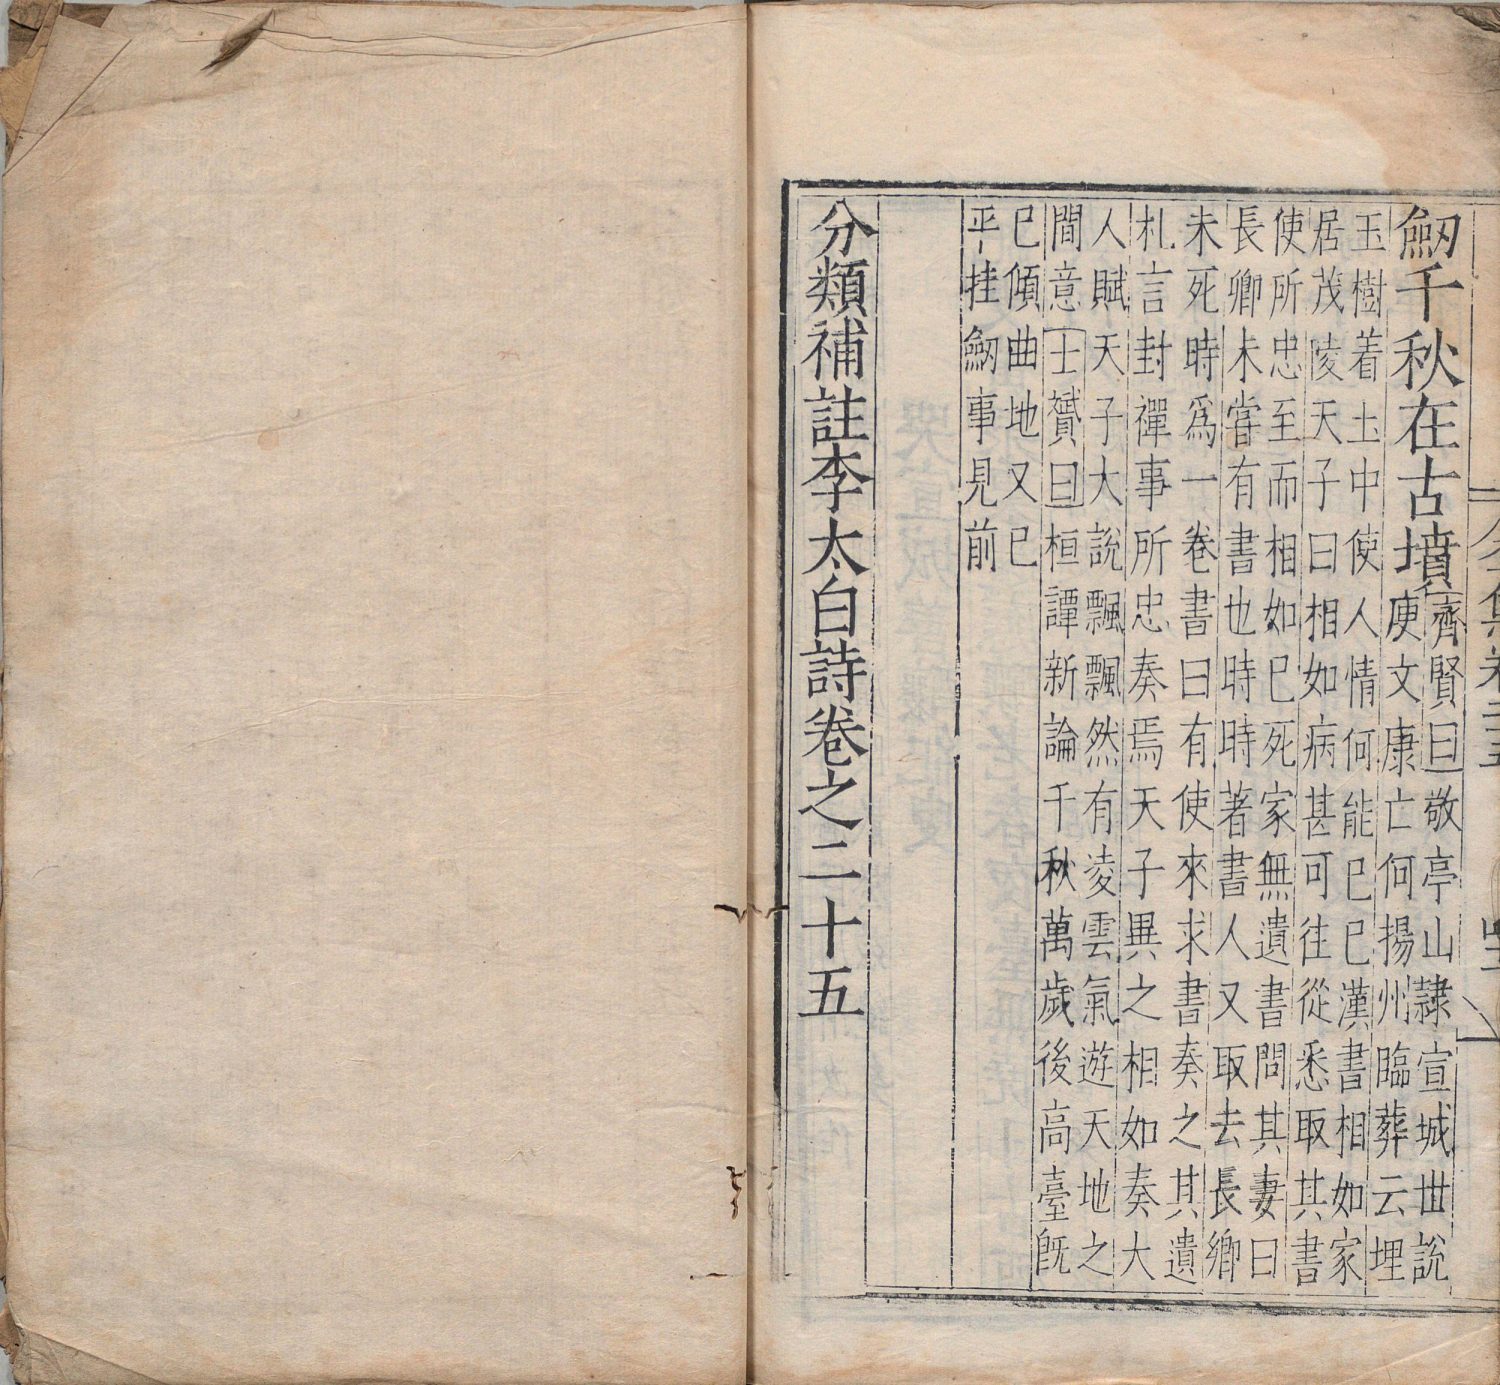 劒千秋在古墳
齊賢曰敬亭山隸宣城世說
庾文康亡何揚州臨葬云埋
玉樹着土中使人情何能已已漢書相如家
居茂陵天子曰相如病甚可往從悉取其書
使所忠至而相如已死家無遺書問其妻曰
長卿未嘗有書也時時著書人又取去長卿
未死時爲一卷書曰有使來求書奏之其遺
札言封禪事所忠奏焉天子異之相如奏大
人賦天子大說飄飄然有凌雲氣遊天地之
間意士贇曰桓譚新論千秋萬歲後高臺旣
已傾曲地又已
平挂劒事見前
分類補註李太白詩卷之二十五